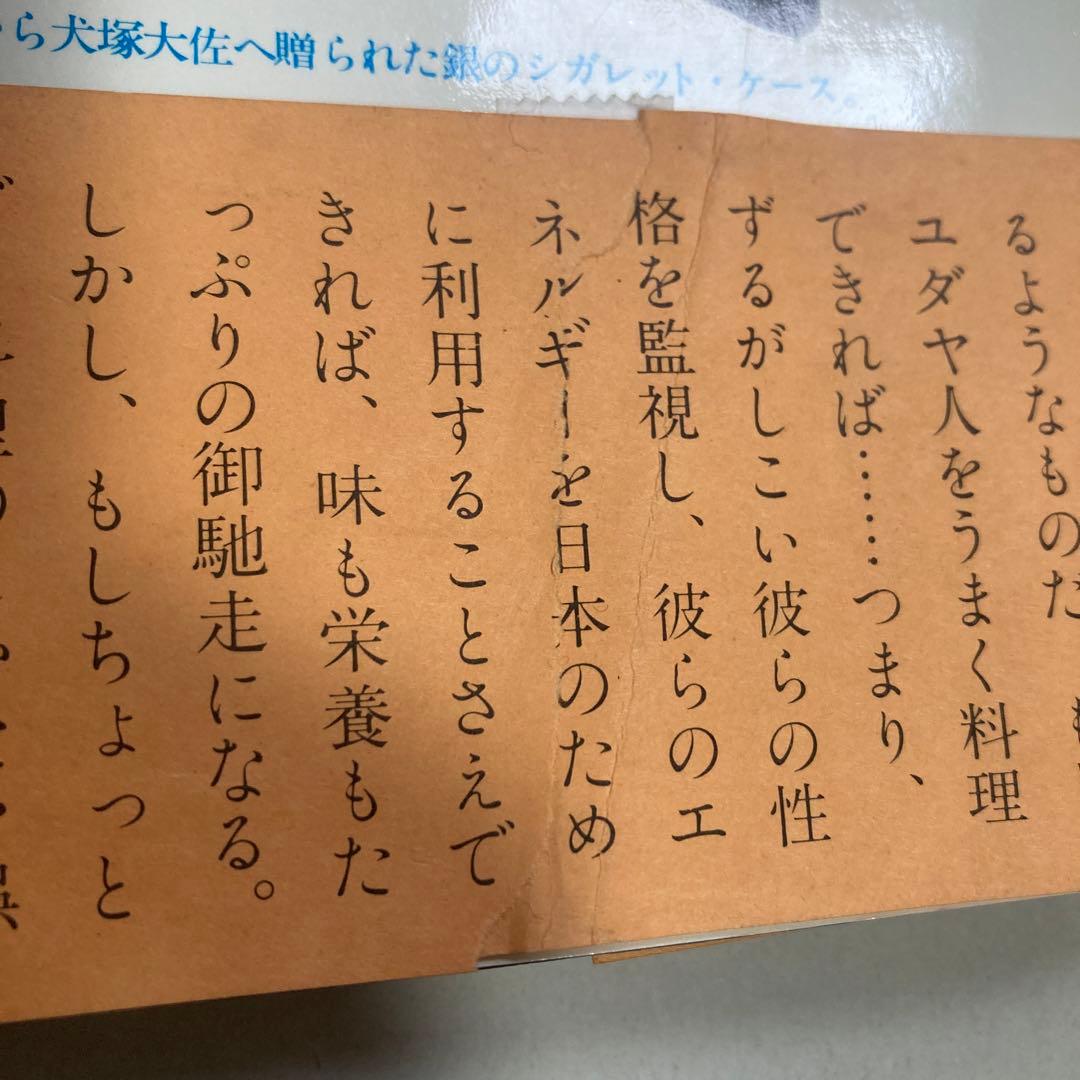 ら犬塚大佐へ贈られた銀のシガレット・ケース。
るようなものだ
ユダヤ人をうまく料理
できれば……つまり、
ずるがしこい彼らの性
格を監視し、彼らのエ
ネルギーを日本のため
に利用することさえで
きれば、味も栄養もた
っぷりの御馳走になる。
しかし、もしちょっと